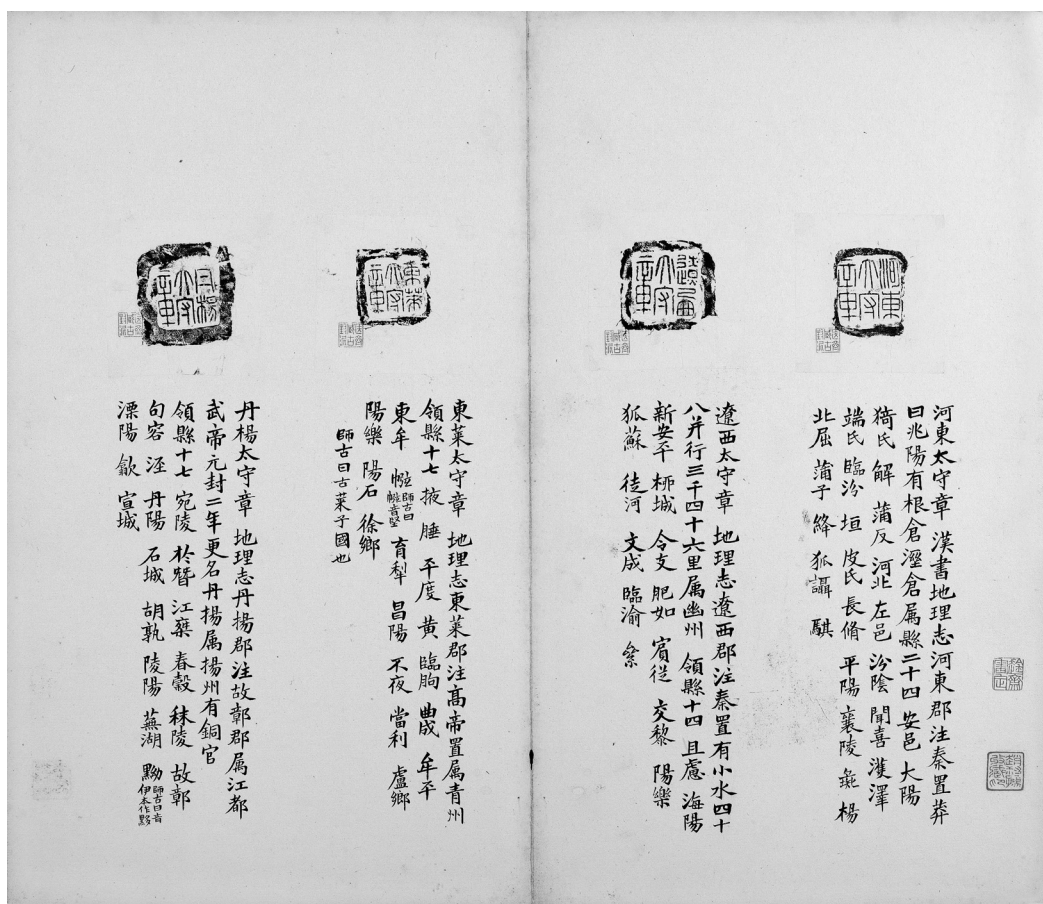 河東太守章
河東太守章 漢書地理志河東郡注秦置莽
曰兆陽有根倉溼倉属縣二十四 安邑 大陽
猗氏 解 蒲反 河北 左邑 汾陰 聞喜 濩澤
端氏 臨汾 垣 皮氏 長脩 平陽 襄陵 彘 楊
北屈 蒲子 絳 狐讘 騏
遼西太守章
遼西太守章 地理志遼西郡注秦置有小水四十
八并行三千四十六里属幽州 領縣十四 且慮 海陽
新安平 柳城 令支 肥如 賓従 交黎 陽樂
狐蘇 徒河 文成 臨渝 絫
東萊太守章
東萊太守章 地理志東萊郡注髙帝置属青州
領縣十七 掖 腄 平度 黄 臨朐 曲成 牟平
東牟 㡉 師古曰㡉音堅 育犁 昌陽 不夜 當利 盧鄉
陽樂 陽石 徐鄉
師古曰古萊子國也
丹楊太守章
丹楊太守章 地理志丹揚郡注故鄣郡属江都
武帝元封二年更名丹揚属揚州有銅官
領縣十七 宛陵 於朁 江乘 春穀 秣陵 故鄣
句容 涇 丹陽 石城 胡孰 陵陽 蕪湖 黝 師古曰音伊本作黟
溧陽 歙 宣城